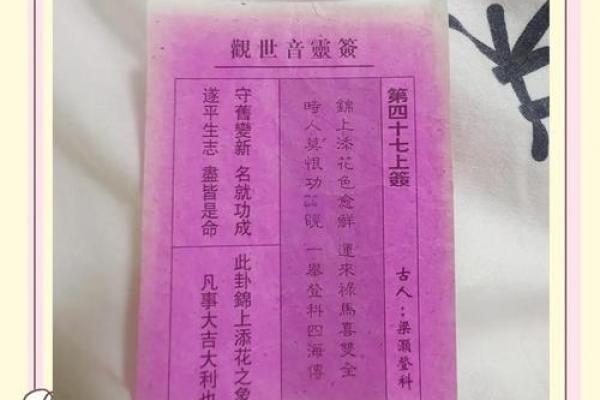 觀世音靈簽
第四十七上簽
古人：梁灝登科
錦上添花色愈鮮 運來祿馬喜雙全
時人莫恨功晚 一舉登科四海傳
守舊變新 名就功成
遂平生志 盡皆是命
此卦錦上添花之象
凡事大吉大利也